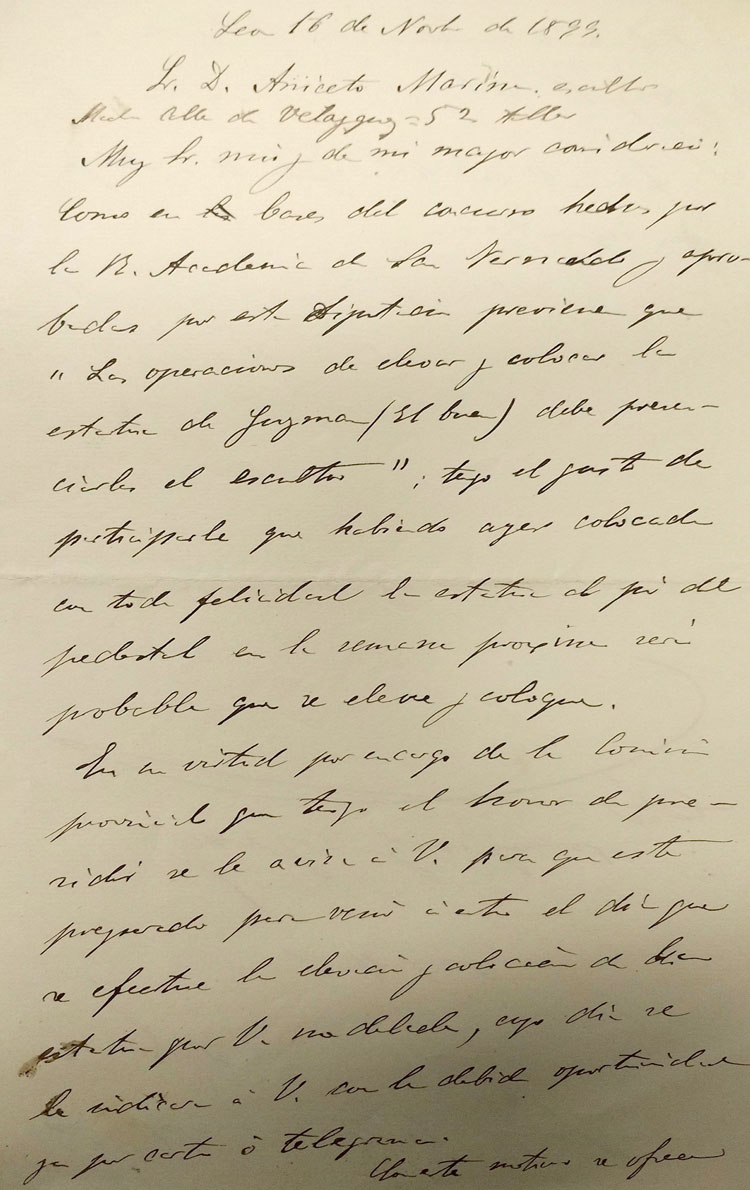 Leon 16 de Novbre de 1899.
Sr. D. Aniceto Marinas, escultor
Calle de Velazquez = 52 taller
Muy Sr. mio y de mi mayor consideracion:
Como en las bases del concurso hechas por
la R. Academia de San Fernando y apro-
badas por esta Diputacion previene que
"Las operaciones de elevar y colocar la
estatua de Guzman (El bueno) debe presen-
ciarlas el escultor"; tengo el gusto de
participarle que habiendo ayer colocado
con toda felicidad la estatua al pié del
pedestal en la semana proxima será
probable que se eleve y coloque.
En su virtud por encargo de la Comision
provincial que tengo el honor de pre-
sidir se le avisa á V. para que esté
preparado para venir á esta el dia que
se efectue la elevación y colocación de dicha
estatua por V. modelada, cuyo dia se
le indicara á V. con la debida oportunidad
ya por carta ó telegrama.
Con este motivo se ofrece